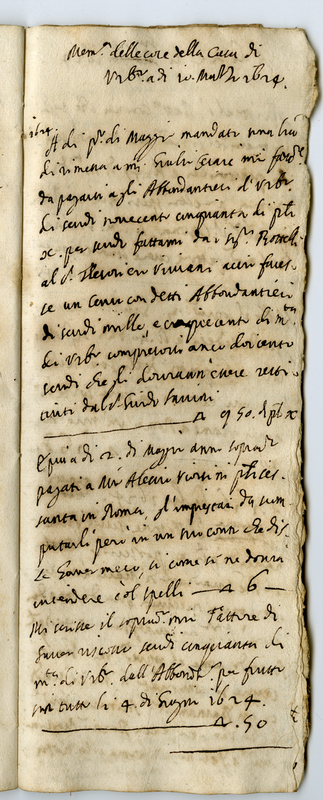 Mem.a delle cose della Casa di
Urb.o a di 10. Marzo 1624.
1624
A di p.o di Maggio mandata una l'ra
di rimessa a m. Giulio Cesare mio fattore
da pagarsi agli Abbondantieri d'Urb.o
di scudi novecento cinquanta di p.li
x per scudo fattami da i Sig.ri
al S.r Viviani
se un con detti Abbondantieri
di scudi mille, e cinquecento di m.ta
di Urb.o compresovi anco dorcento
scudi che gli dovranno essere resti-
tuiti dal S.r Guido
950. di p.li x
E più a di 2. di Maggio anno soprad.o
pagati a M.r in
santa in Roma, gl'imprestai da scom-
putarli però in un suo conto che dis-
se haver meco, si come se ne dovrà
intendere col 6
Mi scrisse il soprad.o mio Fattore di
haver riscosso scudi cinquanta di
m.ta di Urb.o dall'Abbond.a per frutti
per tutto li 4. di Giugno 1624.
50